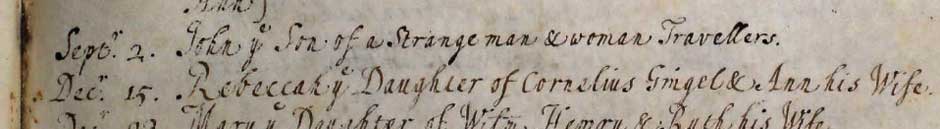 Ann)
Septr. 2. John ye Son of a Strange man & woman Travellers.
Decr. 15. Rebeccah ye Daughter of Cornelius Gingel & Ann his Wife.
Mary ye Daughter of Willm. Hemry & Ruth his Wife